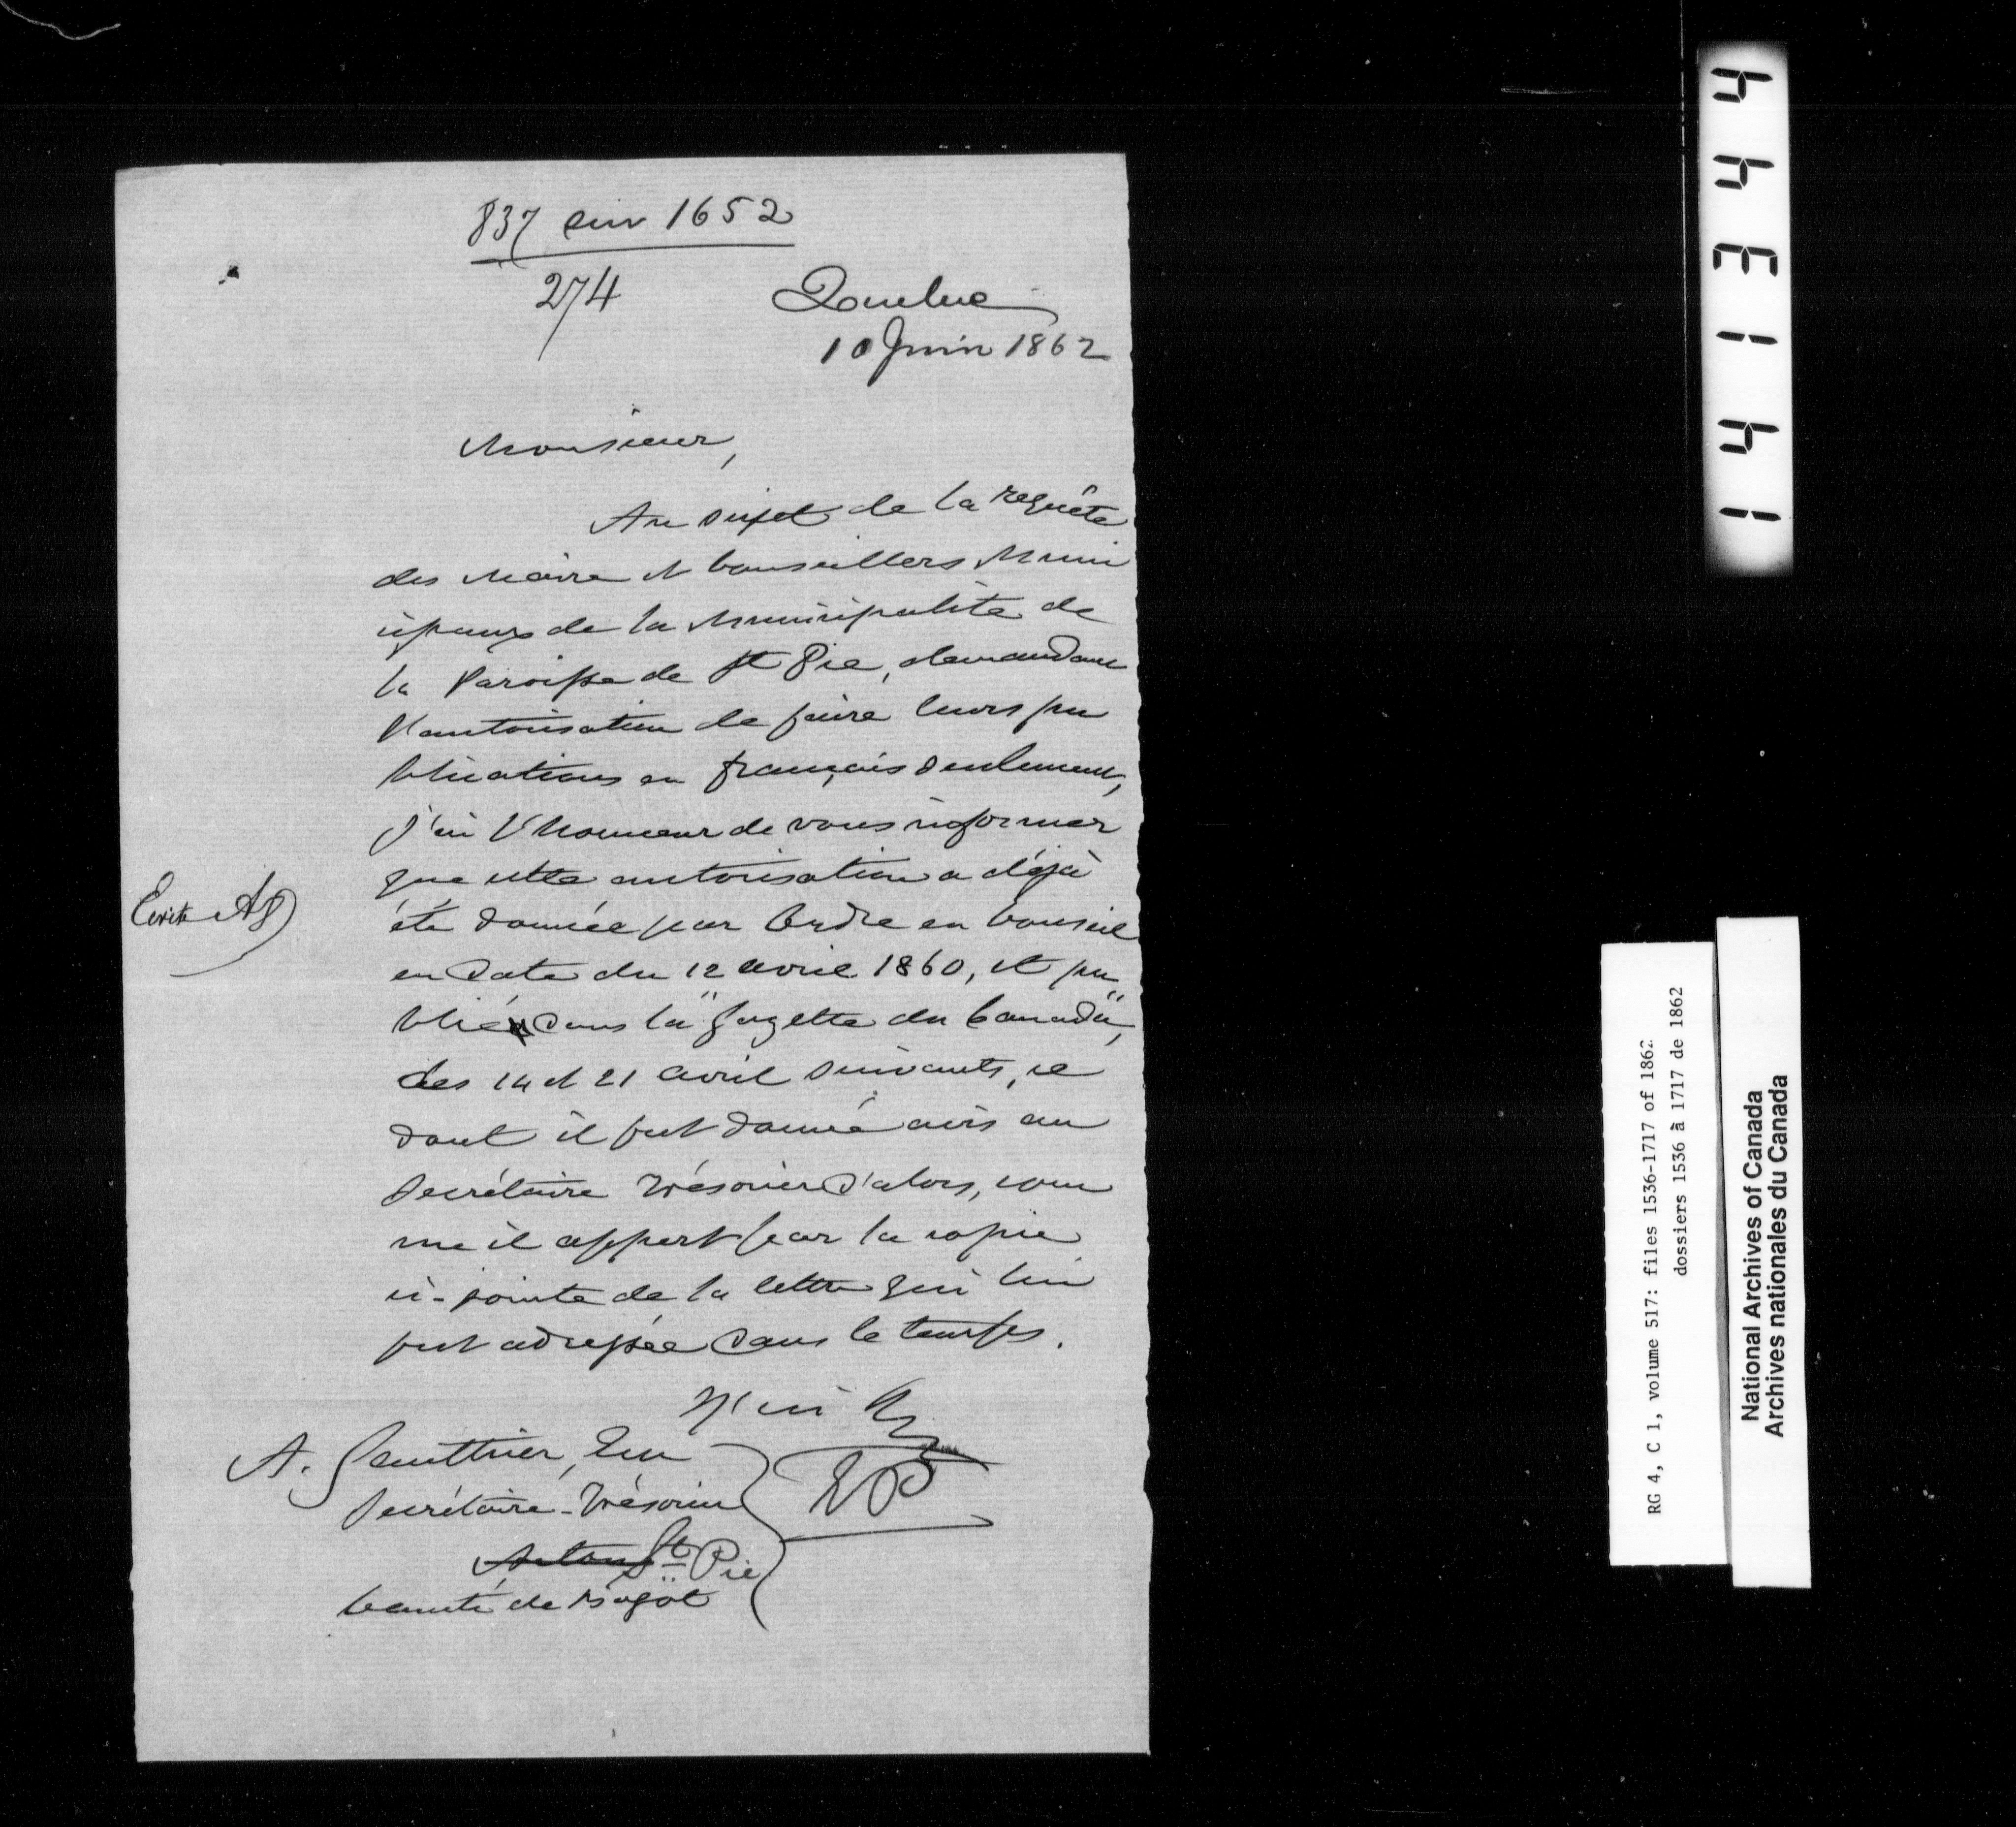 837 sur 1652
274
Quebec
10 Juin 1862
Monsieur,
Au sujet de la requête
des Maire et Conseillers Muni
cipaux de la Municipalité de
la Paroisse de St Pie, demandant
l'autorisation de faire leurs pu
blications en français seulement,
j'ai l'honneur de vous informer
que cette autorisation a déjà
été donnée par Ordre en Conseil
en date du 12 avril 1860, et pu
bliée dans la "Gazette du Canada",
des 14 et 21 avril suivants, ce
dont il fut donné avis au
Secrétaire Trésorier d'alors, com
me il appert par la copie
ci-jointe de la lettre qui lui
fut adressée dans le temps.
J'ai
Ecrite
A. Gauthier, Ecr
Secrétaire-Trésorier
Acton St Pie
Comté de Bagot
EP
144134
RG 4, C 1, volume 517: files 1536-1717 of 1862
dossiers 1536 à 1717 de 1862
National Archives of Canada
Archives nationales du Canada